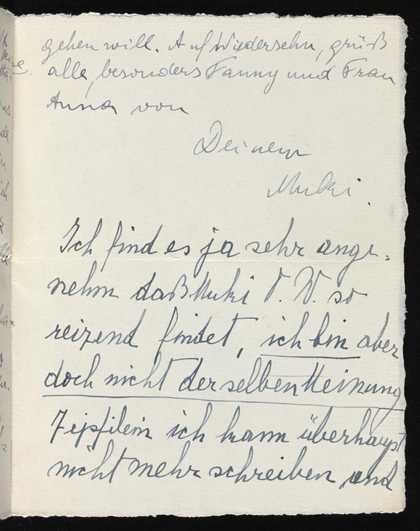 gehen will. Auf Wiedersehn, grüß
alle, besonders Fanny und Frau
Anna von
Deinem
Muki.
Ich find es ja sehr ange-
nehm daß Muki O. V. so
reizend findet, ich bin aber
doch nicht derselben Meinung
Zipfilein ich kann überhaupt
nicht mehr schreiben und